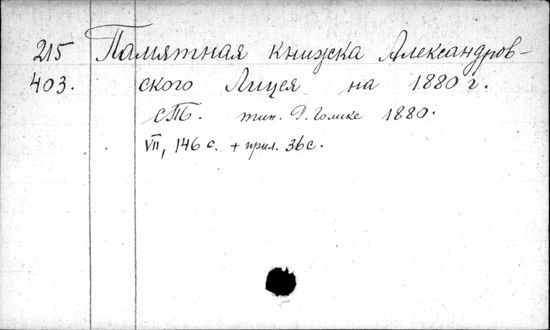 215 Памятная книжка Александров-
403. ского Лицея на 1880 г.
СПб. тип. Р. Голике 1880.
VII, 146 с. + прил. 36 с.